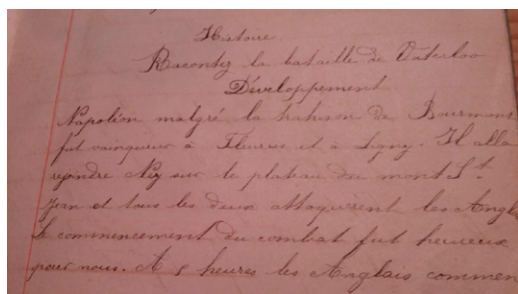 Histoire
Racontez la bataille de Waterloo
Développement
Napoléon malgré la trahison de Bourmont
fut vainqueur à Fleurus et à Ligny. Il alla
rejoindre Ney sur le plateau du mont St.
Jean et tous les deux attaquèrent les Angl
le commencement du combat fut heureux
pour nous. A 5 heures les Anglais commen